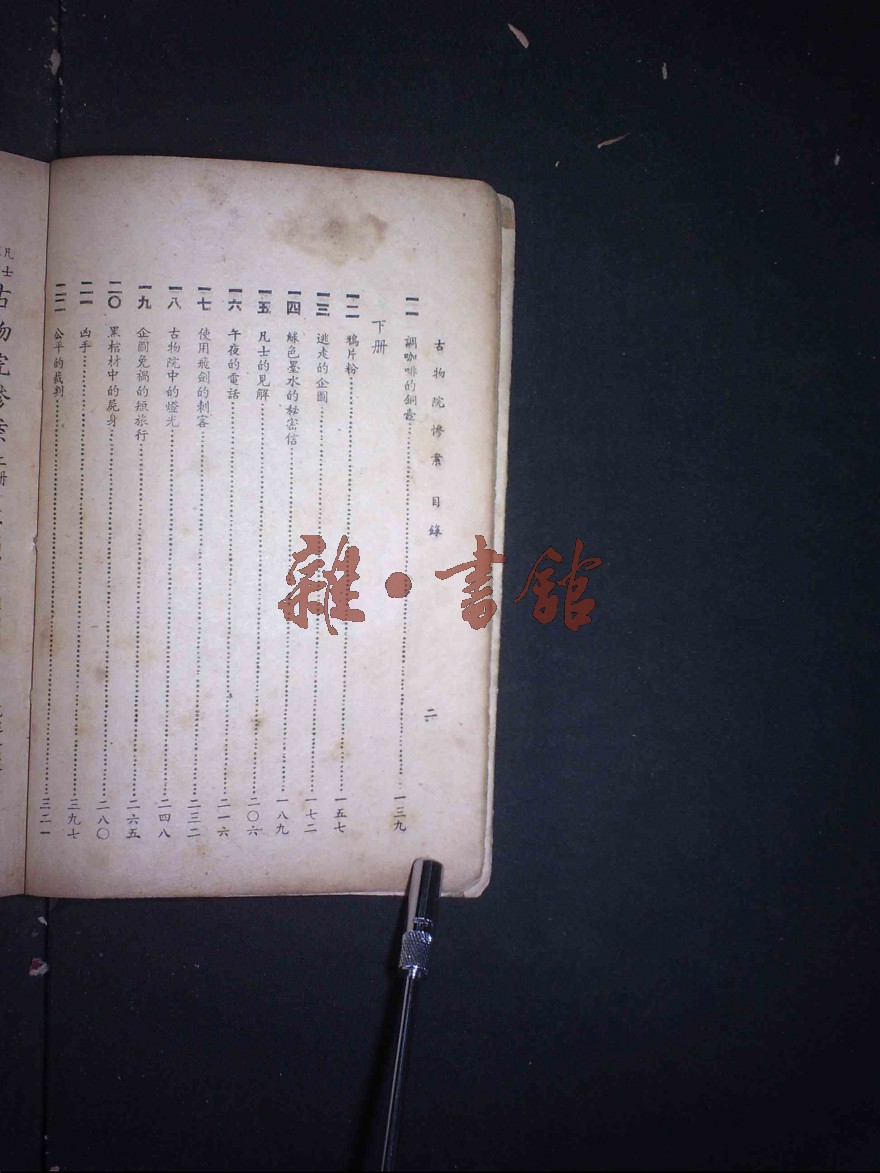 古物院慘案 目錄
二
一一 調咖啡的銅壼 一三九
下册
一二 鴉片粉 一五七
一三 逃走的企圖 一七二
一四 綠色墨水的秘密信 一八九
一五 凡士的見解 二〇六
一六 午夜的電話 二一六
一七 使用飛劍的刺客 二三二
一八 古物院中的燈光 二四八
一九 企圖免禍的短旅行 二六五
二〇 黑棺材中的屍身 二八〇
二一 凶手 三九七
二二 公平的裁判 三二一
凡士
古物院慘案 上册
雜·書館